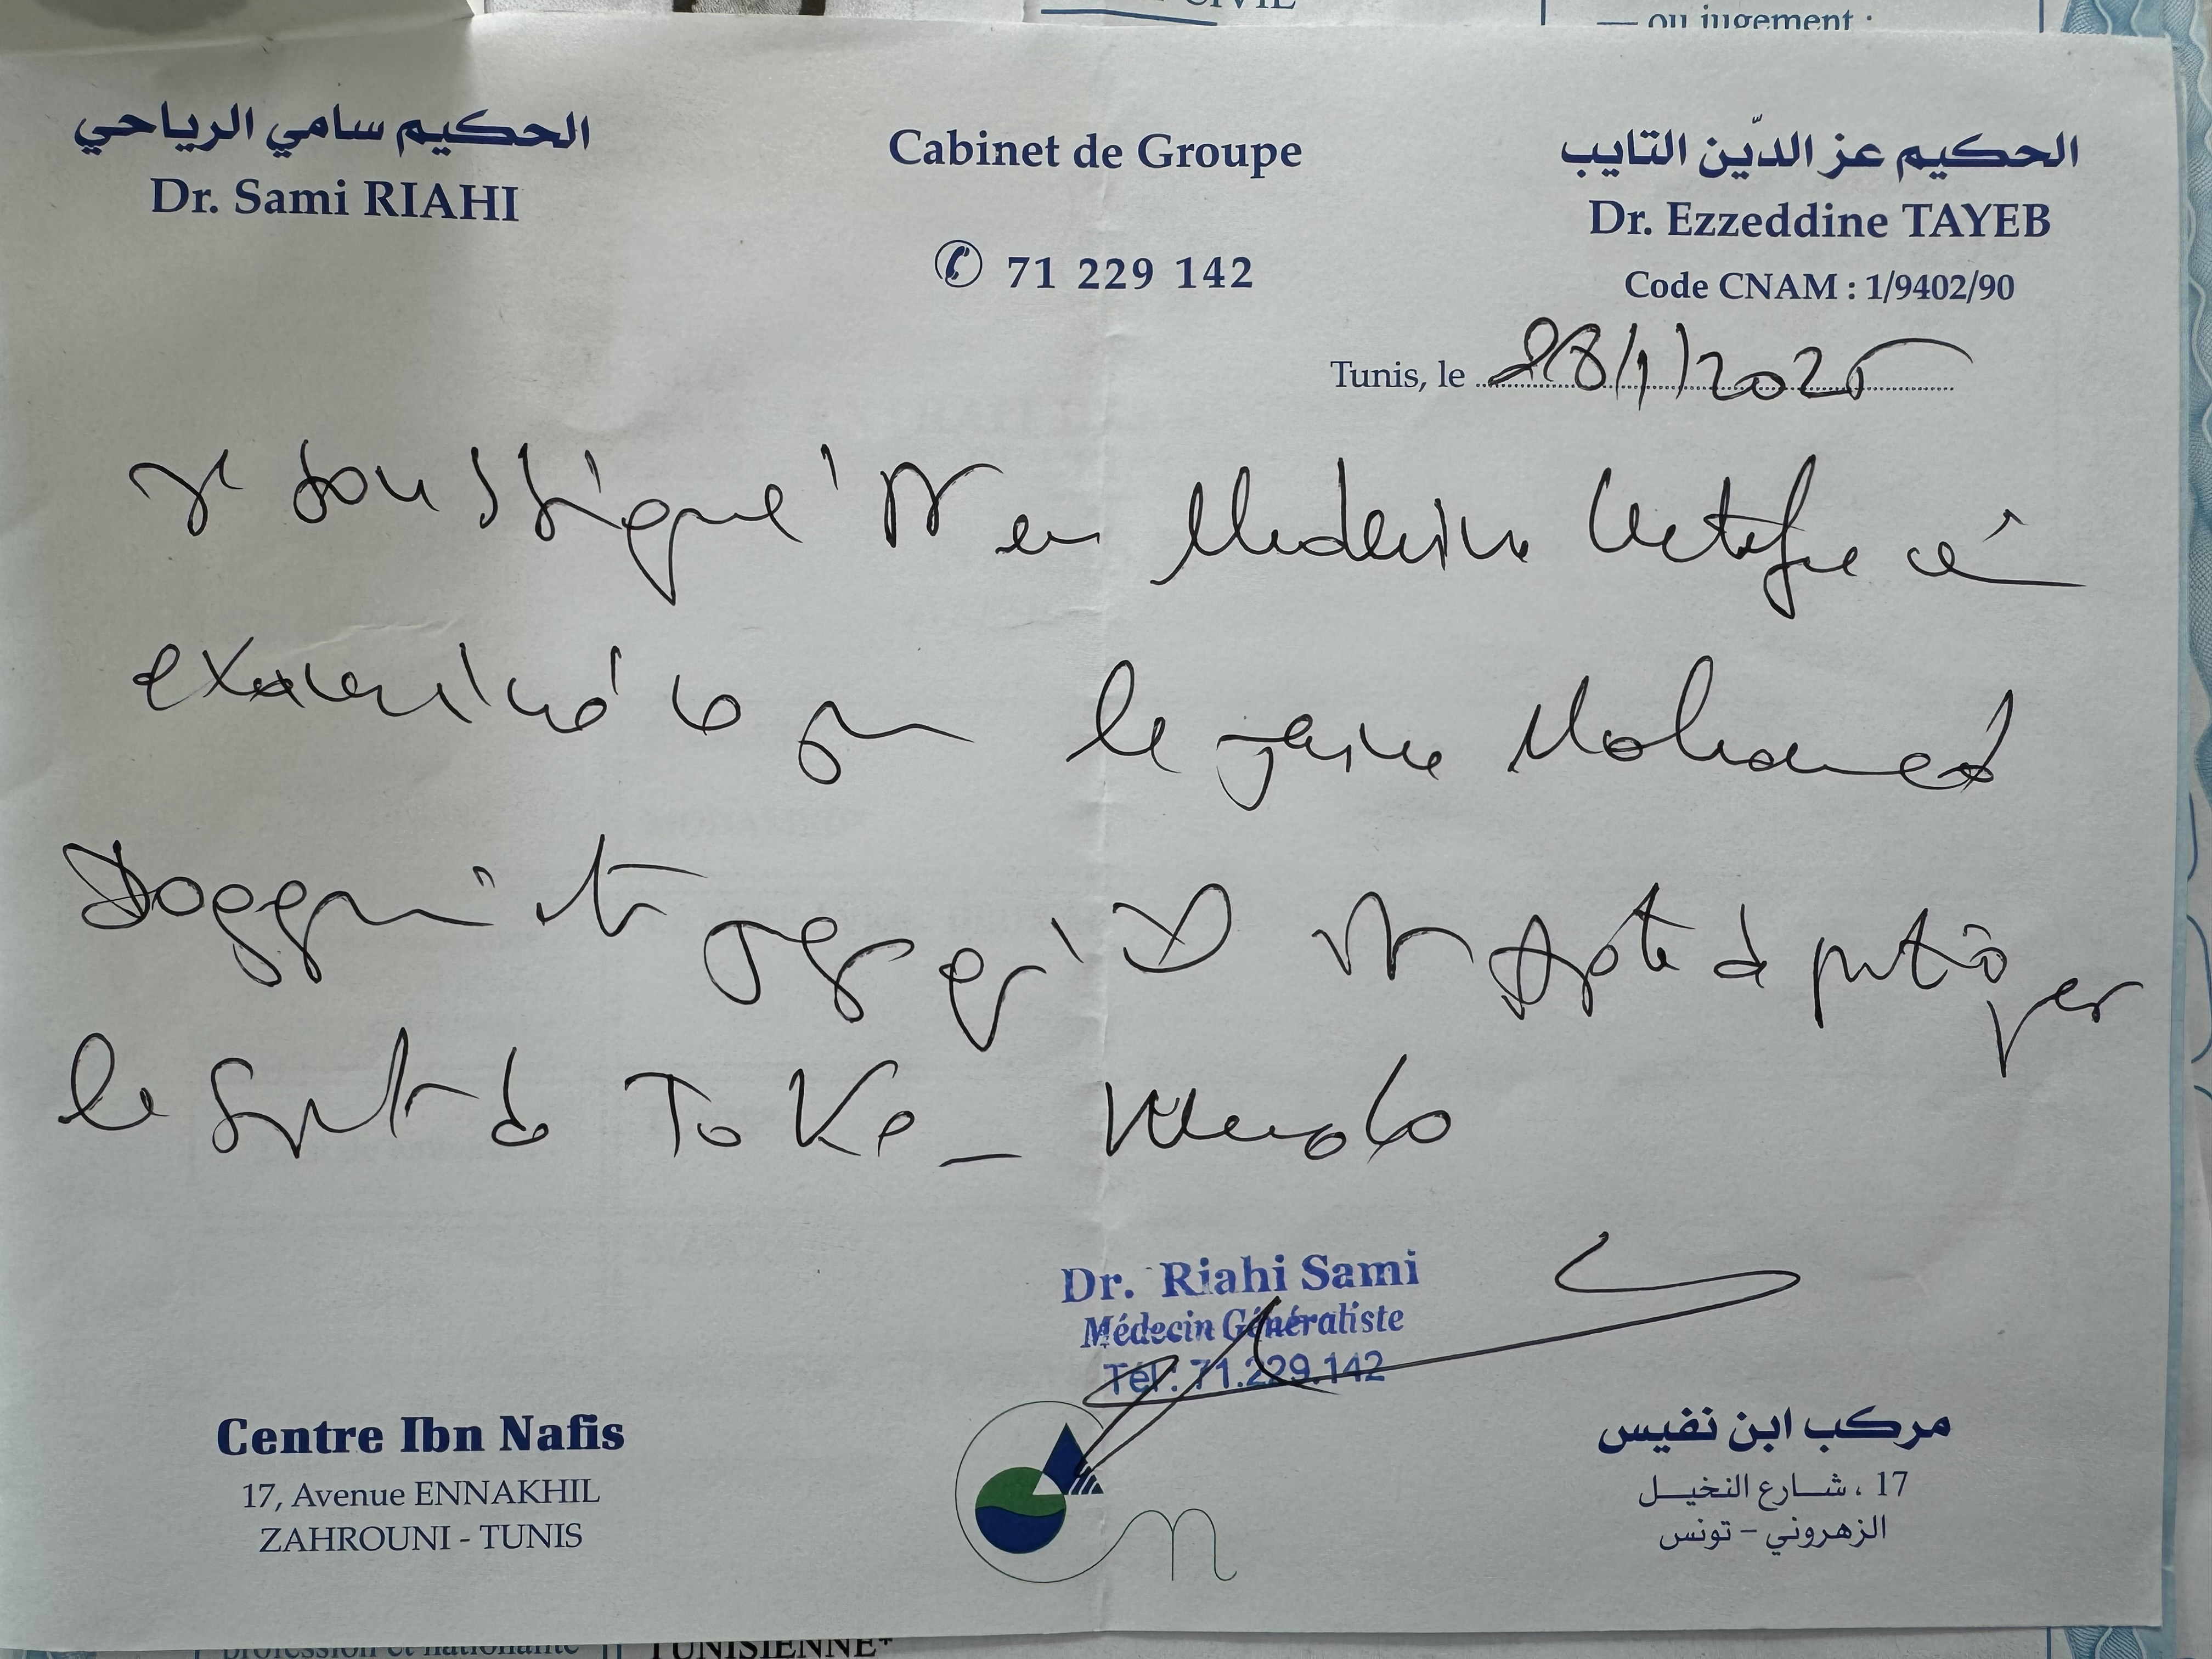 CIVIL
— ou jugement :
الحكيم سامي الرياحي
Dr. Sami RIAHI
Cabinet de Groupe
71 229 142
الحكيم عز الدّين التايب
Dr. Ezzeddine TAYEB
Code CNAM : 1/9402/90
Tunis, le 28/1/2025
Je soussigné Dr en Medecine Certifie
examiné ce jour le jeune Mohamed
qu'il est Apte à pratiquer
le Sport de Taekwondo
Dr. Riahi Sami
Médecin Généraliste
Tél : 71.229.142
Centre Ibn Nafis
17, Avenue ENNAKHIL
ZAHROUNI - TUNIS
مركب ابن نفيس
17 ، شارع النخيل
الزهروني - تونس
profession et nationalité
TUNISIENNE*